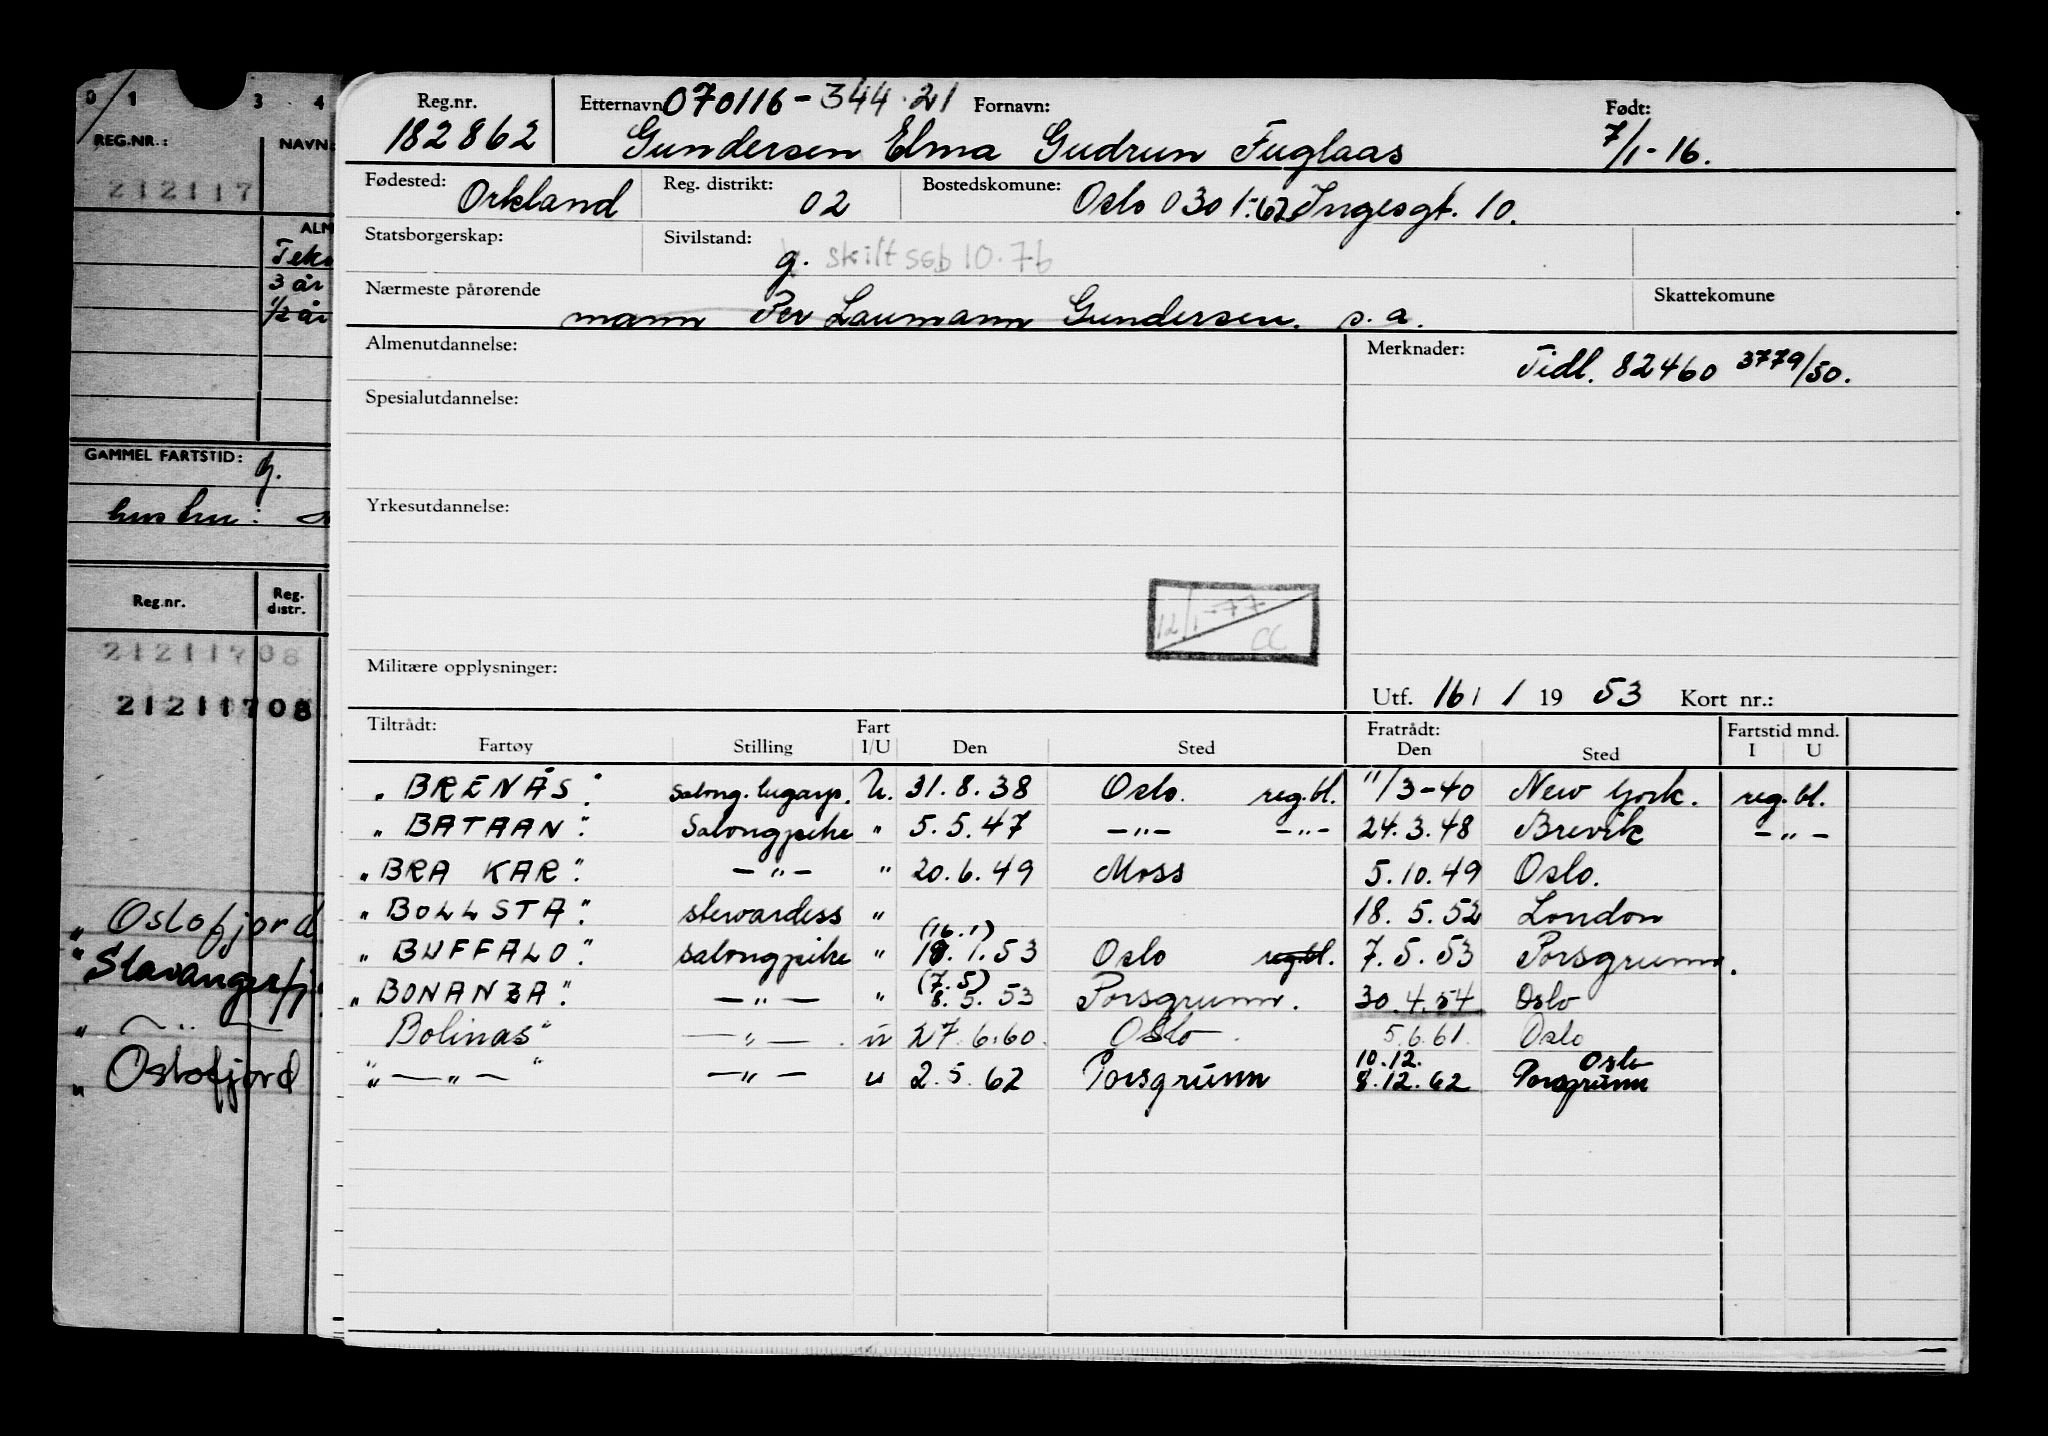 0 1 3 4
REG.NR.: NAVN:
212117
ALM
3 år
1/2 år
GAMMEL FARTSTID: g.
Reg.nr. Reg. distr.
21211708
21211708
„ Oslofjord
" Stavangerfj
" — " —
„ Oslofjord
Reg.nr. Etternavn: 070116-344.21 Fornavn: Født:
182862 Gundersen Elma Gudrun Fuglaas 7/1-16.
Fødested: Orkland Reg. distrikt: 02 Bostedskomune: Oslo 0301-62 Ingesgt. 10.
Statsborgerskap: Sivilstand: g. skilt ssb 10.76
Nærmeste pårørende mann Per Laumann Gundersen. s.a. Skattekomune
Almenutdannelse: Merknader: Tidl. 82460 3779/50.
Spesialutdannelse:
Yrkesutdannelse:
12/1-77 CC
Militære opplysninger:
Utf. 16/1 1953 Kort nr.:
Tiltrådt: Fart Fratrådt: Fartstid mnd.
Fartøy Stilling I/U Den Sted Den Sted I U
„BRENÅS". salong.lugarp. U. 31.8.38 Oslo. reg.bl. 11/3-40 New York. reg.bl.
„BATAAN". Salongpike " 5.5.47 —"— —"— 24.3.48 Brevik —"—
„BRA KAR". —"— " 20.6.49 Moss 5.10.49 Oslo.
„BOLLSTA". stewardess " 18.5.52 London
(16.1)
„BUFFALO". salongpike " 19.1.53 Oslo reg.bl. 7.5.53 Porsgrunn.
(7.5)
„BONANZA". —"— " 8.5.53 Porsgrunn. 30.4.54 Oslo
Bolinas" —"— u 27.6.60. Oslo 5.6.61. Oslo
10.12. Oslo
„—"—" —"— u 2.5.62 Porsgrunn 8.12.62 Porsgrunn